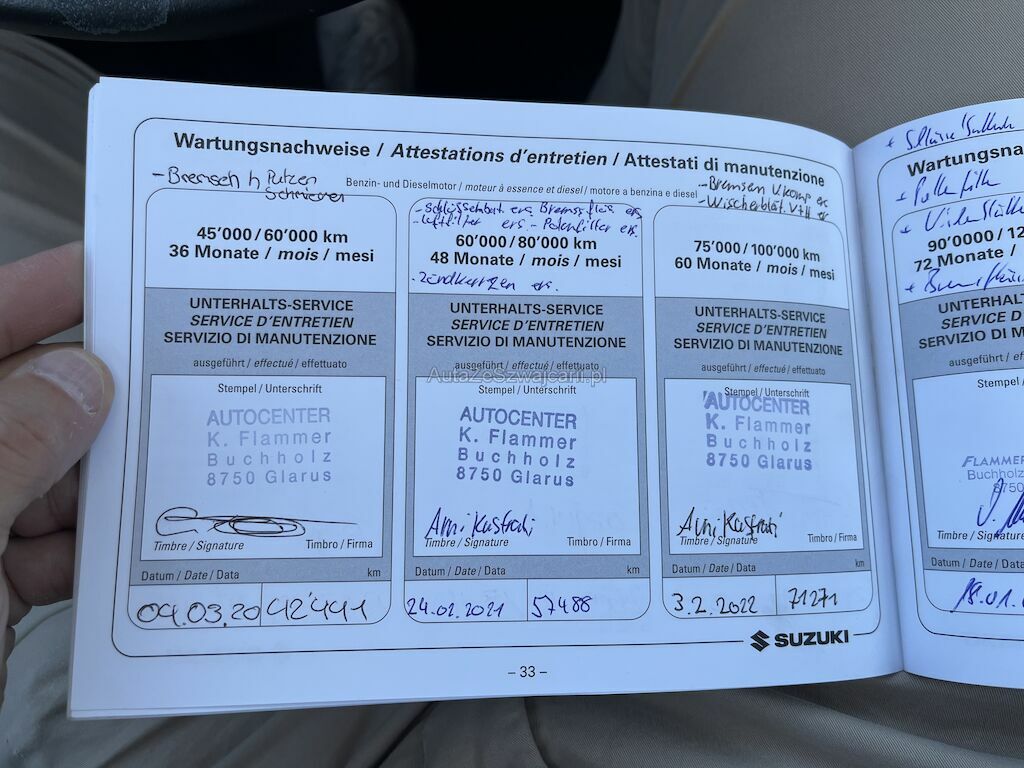 Wartungsnachweise / Attestations d'entretien / Attestati di manutenzione
Benzin- und Dieselmotor / moteur à essence et diesel / motore a benzina e diesel
- Bremsen h Putzen
Schmieren
45'000 / 60'000 km
36 Monate / mois / mesi
UNTERHALTS-SERVICE
SERVICE D'ENTRETIEN
SERVIZIO DI MANUTENZIONE
ausgeführt / effectué / effettuato
Stempel / Unterschrift
AUTOCENTER
K. Flammer
Buchholz
8750 Glarus
Timbre / Signature Timbro / Firma
Datum / Date / Data km
04.03.20 42'441
- Schlüsselbat. ers. Bremsflüs. ers
- Luftfilter ers. - Polenfilter ers.
60'000 / 80'000 km
48 Monate / mois / mesi
- Zündkerzen ers.
UNTERHALTS-SERVICE
SERVICE D'ENTRETIEN
SERVIZIO DI MANUTENZIONE
ausgeführt / effectué / effettuato
AutazeSzwajcarii.pl
Stempel / Unterschrift
AUTOCENTER
K. Flammer
Buchholz
8750 Glarus
Ami Kastrati
Timbre / Signature Timbro / Firma
Datum / Date / Data km
24.02.2021 57488
- Bremsen V. komp er
- Wischerblät. V+H er
75'000 / 100'000 km
60 Monate / mois / mesi
UNTERHALTS-SERVICE
SERVICE D'ENTRETIEN
SERVIZIO DI MANUTENZIONE
ausgeführt / effectué / effettuato
Stempel / Unterschrift
AUTOCENTER
K. Flammer
Buchholz
8750 Glarus
Ami Kastrati
Timbre / Signature Timbro / Firma
Datum / Date / Data km
3.2.2022 71271
SUZUKI
– 33 –
Wartungsna
90'0000 / 12
72 Monate /
UNTERHALT
SERVICE D
SERVIZIO DI
ausgeführt /
Stempel /
FLAMMER
Buchholz
8750
Timbre / Signature
Datum / Date / Data
18.01.